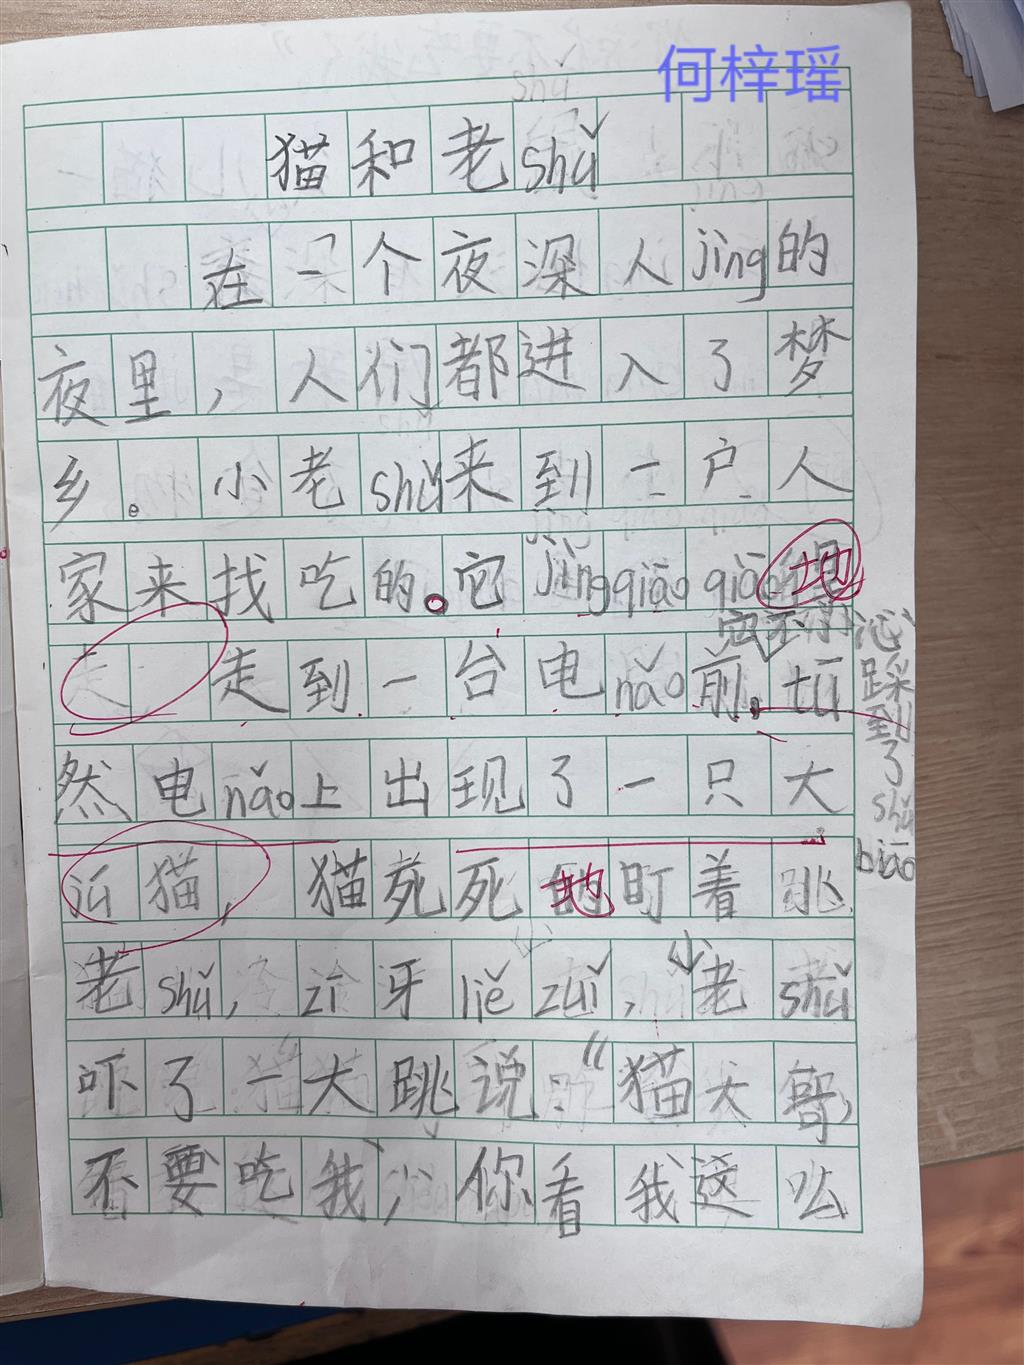 何梓瑶
猫和老shǔ
在一个夜深人jìng的
夜里，人们都进入了梦
乡。小老shǔ来到一户人
家来找吃的。它jìngqiāoqiāo地
走到一台电nǎo前。tū
它不小心踩到了shǔbiāo
然电nǎo上出现了一只大
猫，猫死死地盯着
老shǔ，zī牙liězuǐ，小老shǔ
吓了一大跳说：“猫大哥，
不要吃我，你看我这么